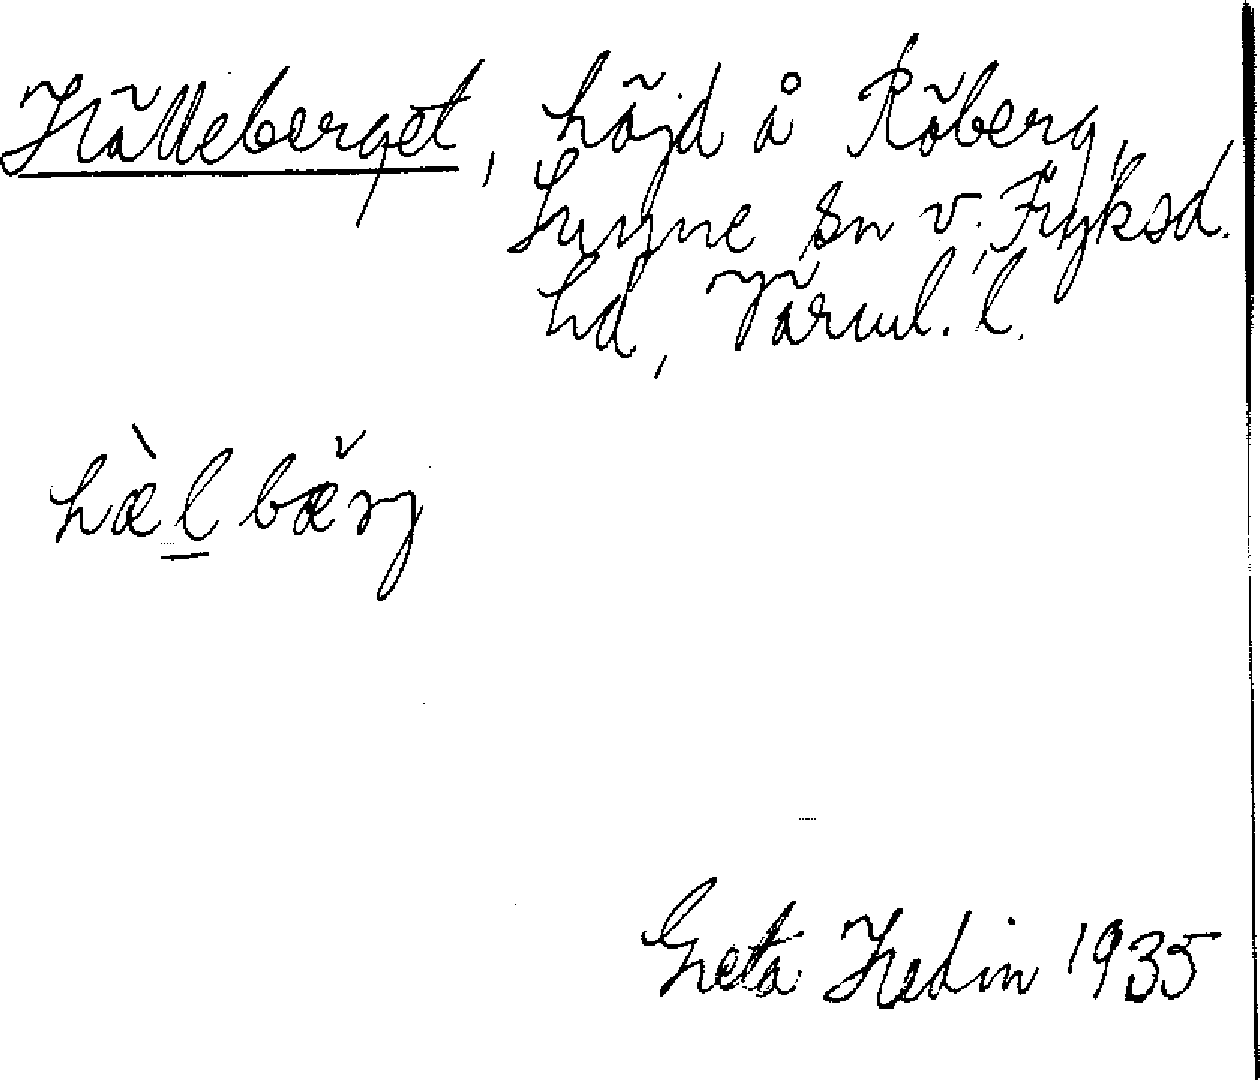 Hälleberget, höjd å Röberg,
Sunne sn v. Fryksd.
hd, Värml. l.
hæ̀l bæ̌rj
Greta Hedin 1935